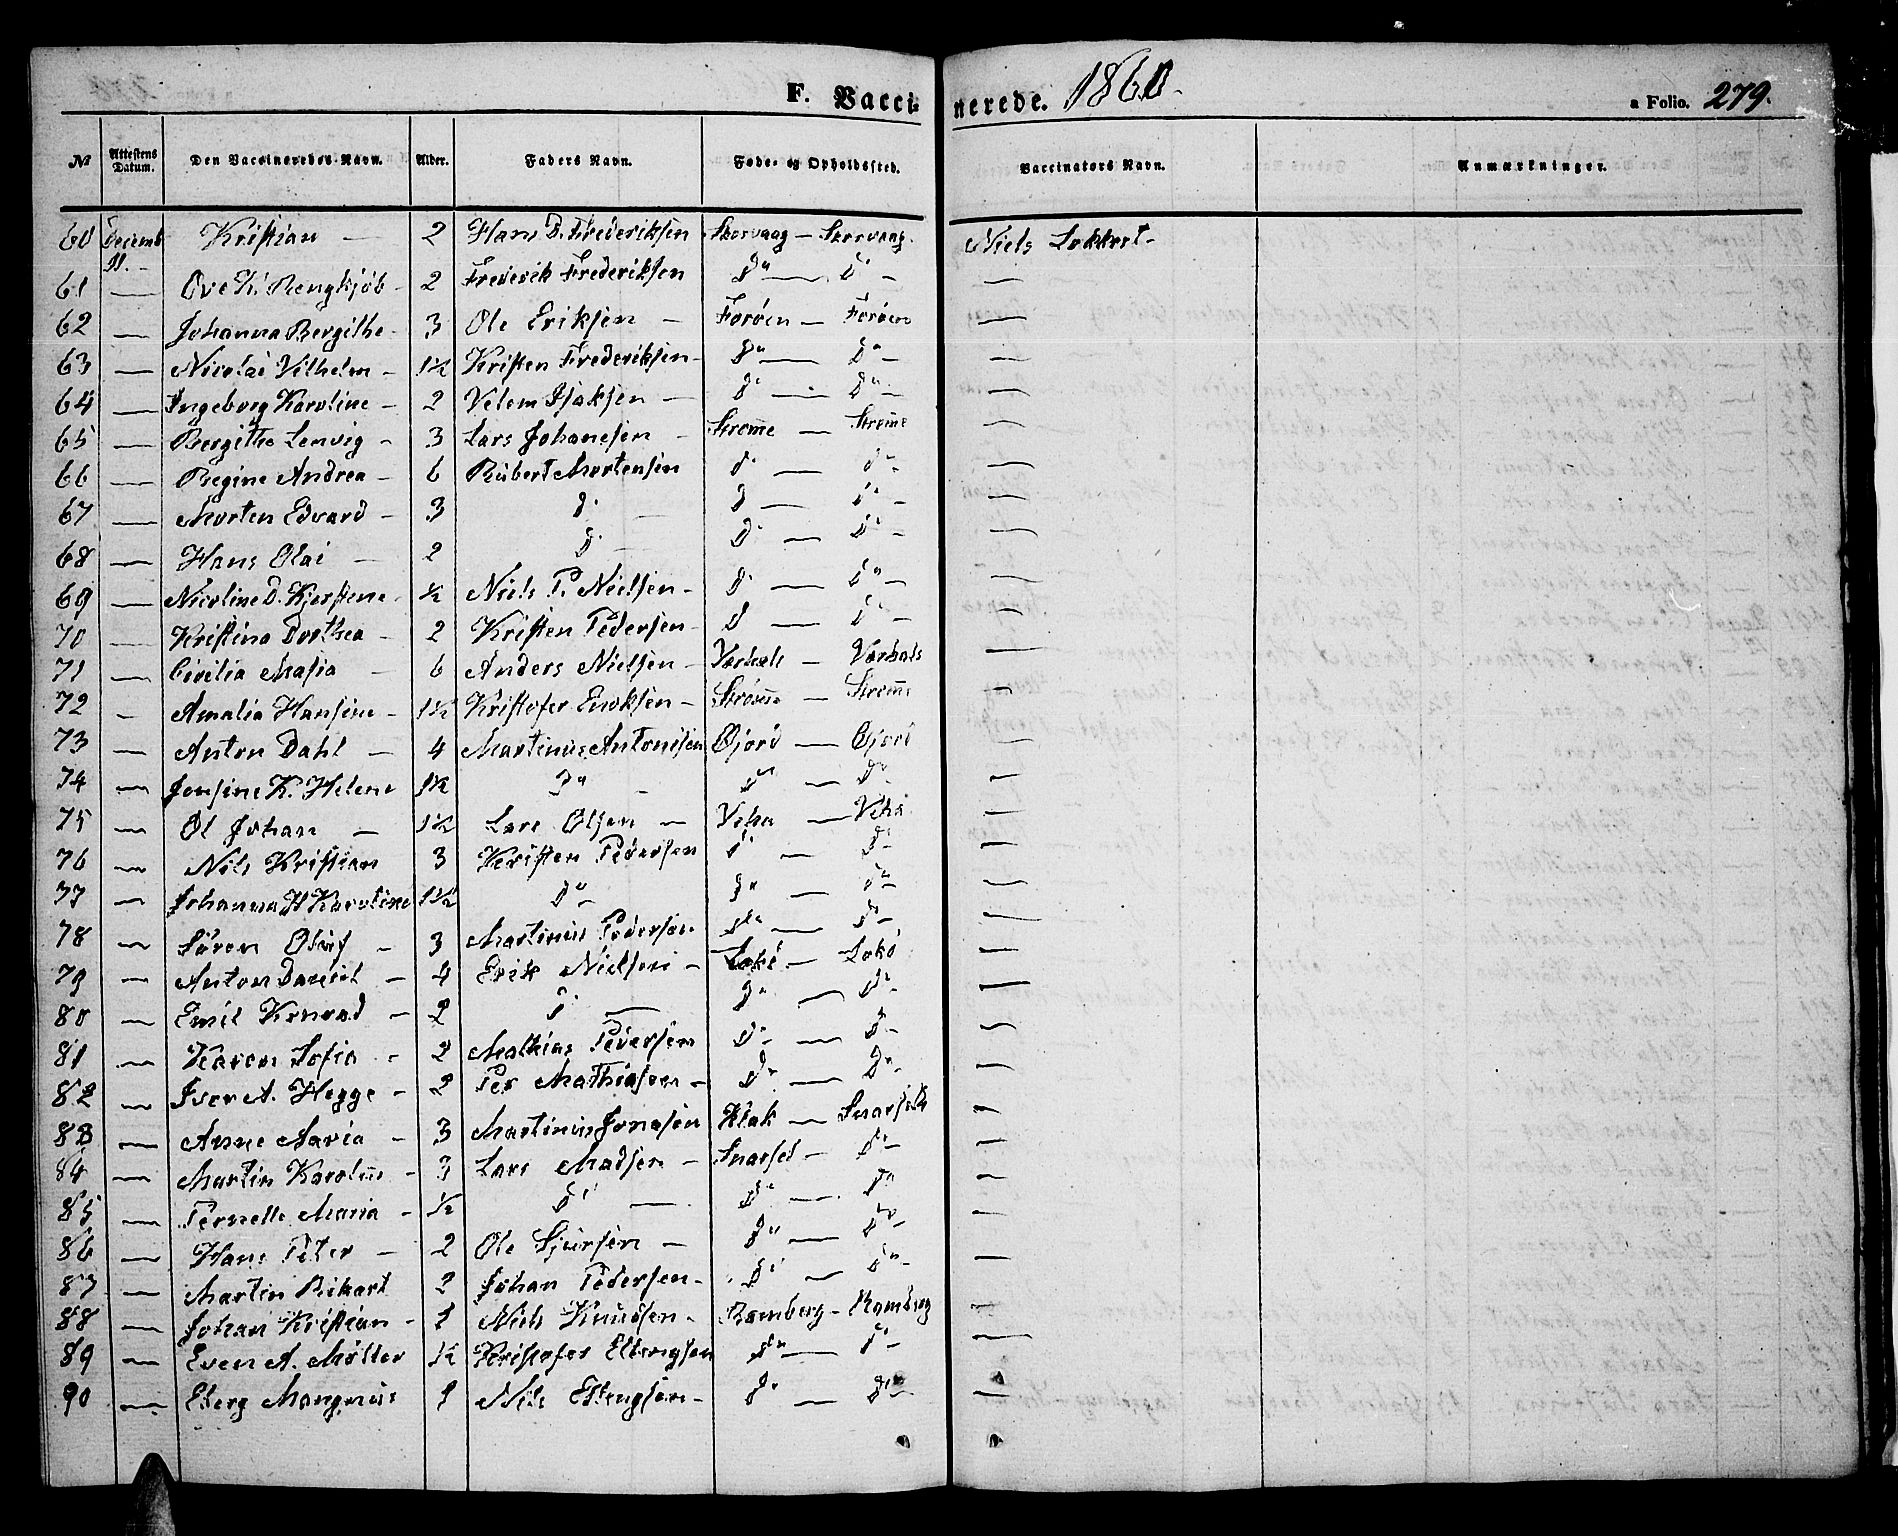 F. Vaccinerede. 1860. a Folio. 279.
№ Attestens Datum. Den Vaccineredes Navn. Alder. Faders Navn. Føde- og Opholdssted. Vaccinators Navn. Anmærkninger.
60 Decemb 11. Kristian — 2 Hans D. Frederiksen Storvaag — Storvaag. Niels Lokkert
61 — Ove H. Rengkjøb 2 Frederik Frederiksen Do — Do —
62 — Johanna Bergithe 3 Ole Eriksen — Forøen — Forøen —
63 — Nicolai Vilhelm — 1½ Kristen Frederiksen — Do — Do —
64 — Ingeborg Karoline — 2 Velem Isaksen — Do — Do —
65 — Bergithe Lenvig — 3 Lars Johanesen — Strøm̄e — Strøm̄e —
66 — Regine Andrea — 6 Rubert Mortensen do — do —
67 — Morten Edvard — 3 Do — Do — Do —
68 — Hans Olai — 2 Do — Do — Do —
69 — Nicoline D. Kjerstene ½ Niels P. Nielsen — Do — Do —
70 — Kristina Drothea — 2 Kristen Pedersen — Do — Do —
71 — Cicilia Masia — 6 Anders Nielsen — Værhals — Værhals —
72 — Amalia Hansine — 1½ Kristofer Enoksen — Strøm̄e — Strøm̄e —
73 — Anton Dahl — 4 Martinus Antonisen Gjord — Gjord —
74 — Jensine K. Helene 1½ Do — Do — Do —
75 — Ol Johan — 1½ Lars Olsen — Veha — Veha —
76 — Nils Kristian 3 Kristen Pedersen Do — Do —
77 — Johanna H Karoline 1½ Do — Do — Do —
78 — Sören Oluf — 3 Martinus Pedersen do — do —
79 — Anton Daniel — 4 Erik Nielsen — Lokö — Lokö —
80 — Emil Konrad — 2 Do — Do — Do —
81 — Karen Sofia — 2 Mathias Pedersen Do — Do —
82 — Iver A. Hegge — 2 Per Mathiasen — Do — Do —
83 — Anne Maria — 3 Martinus Jonasen Klak — Snarset —
84 — Martin Karolius — 3 Lars Madsen — Snarset — Do —
85 — Pernelle Maria — ½ Do — Do — Do —
86 — Hans Peter — 2 Ole Sjursen — Do — Do —
87 — Martin Rikart 2 Johan Pedersen — Do — Do —
88 — Johan Kristian — 1 Niels Knudsen — Ramberg — Ramberg —
89 — Even A. Möller 1½ Kristofer Ellengsen do — do —
90 — Eberg Mangnus 1 Nils Ellengsen — Do — Do —